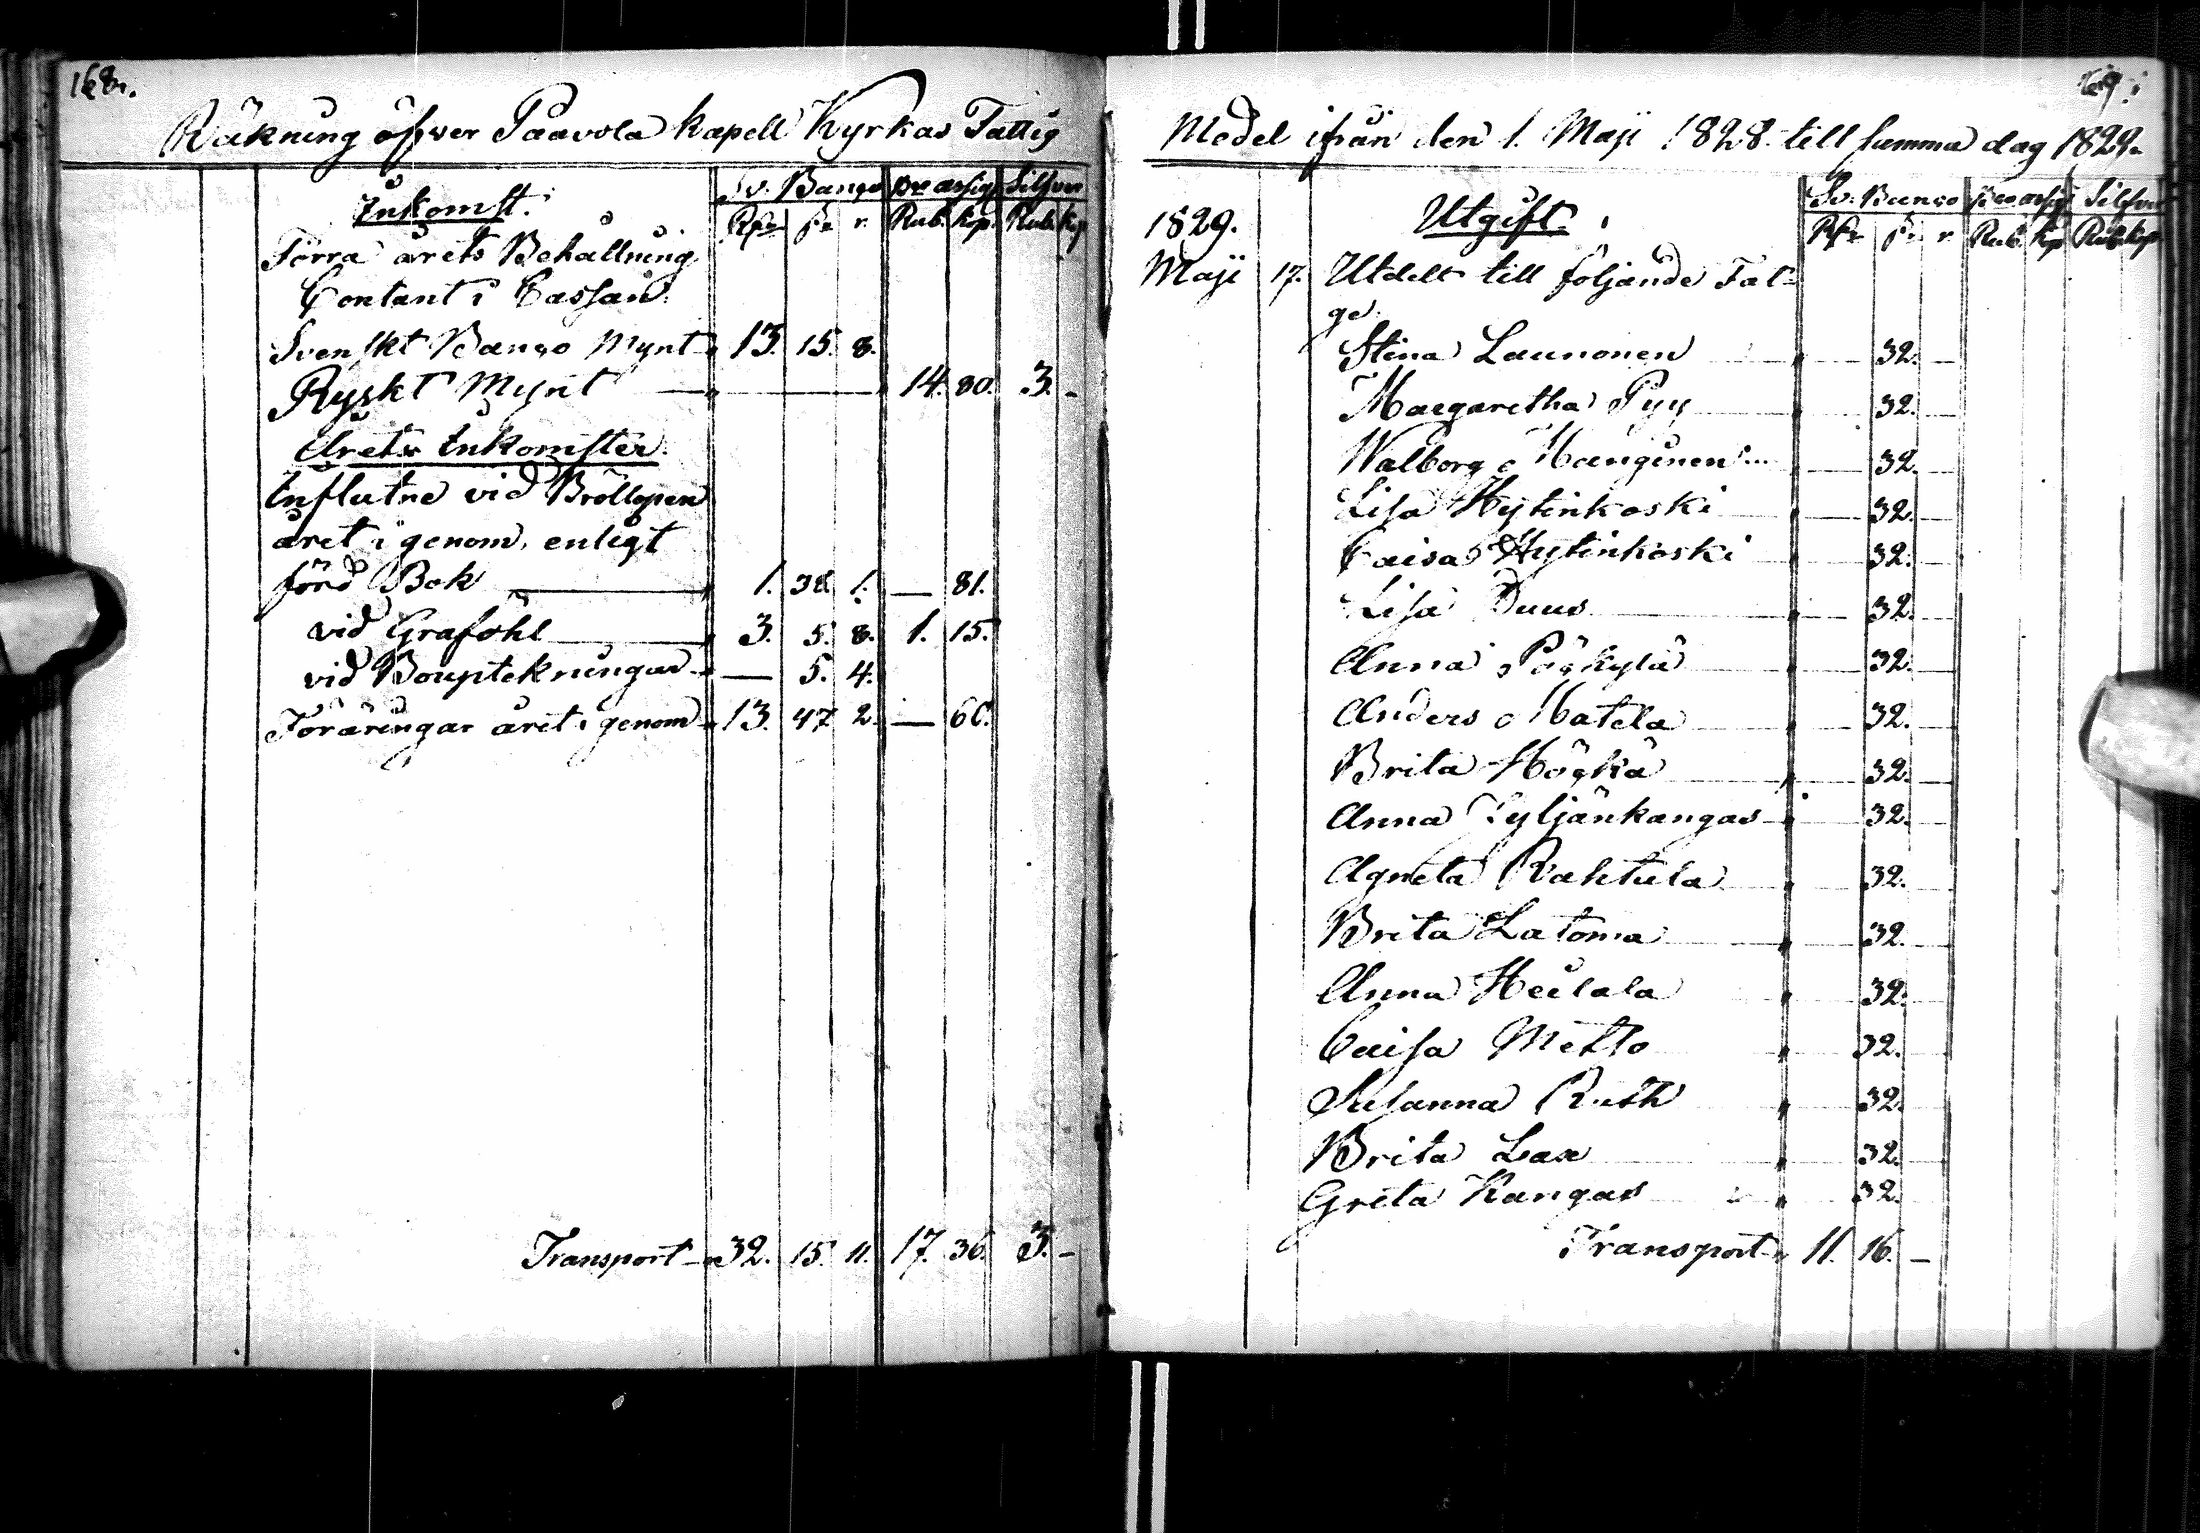 168.
Räkning öfwer Paavola kapell Kyrkas Fattig
Inkomst.
Sv. Banco Bco assig Silfver
Rdr ß. r. Rub. kop. Rub. kop
Förra årets Behållning
Contant i Cassan:
Svenskt Banco Mynt 13. 15. 8.
Ryskt Mynt — 14. 80. 3. -
Årets Inkomster.
Influtne vid Bröllopen
året igenom, enligt
förd Bok — 1. 38. 1. — 81.
vid Graföhl — 3. 5. 8. 1. 15.
vid Bouptekningar — 5. 4.
Föräringar året igenom 13. 47 2. — 60.
Transport 32. 15. 11. 17. 36. 3. -
169.
Medel ifrån den 1. Maji 1828. till samma dag 1829.
1829. Utgift.
Sv. Banco Bco assig Silfver
Rdr ß. r. Rub. kop Rub. kop
Maji 17. Utdelt till följande Fat-
ge.
Stina Launonen 32. —
Margaretha Pyy 32. —
Walborg Hanginen 32. —
Lisa Hytinkoski 32. —
Caisa Hytinkoski 32. —
Lisa Duus 32. —
Anna Pöykylä 32. —
Anders Matela 32. —
Brita Höykä 32. —
Anna Syljänkangas 32. —
Agneta Rahtula 32. —
Brita Latoma 32. —
Anna Heilala 32. —
Caisa Metto 32.
Susanna Ruth 32.
Brita Lax 32. —
Greta Kangas 32.
Transport 11. 16. —